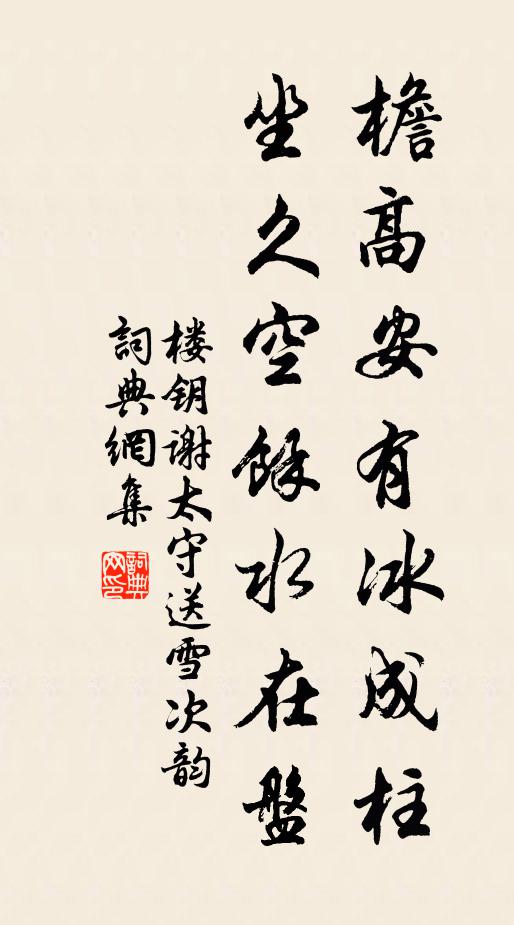 檐高安有冰成柱
坐久空餘水在盤
楼钥谢太守送雪次韵
詞典網集
詞典網印